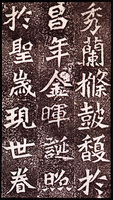 秀蘭櫾皷馥於
昌年金暉誕照
於聖歳現世眷